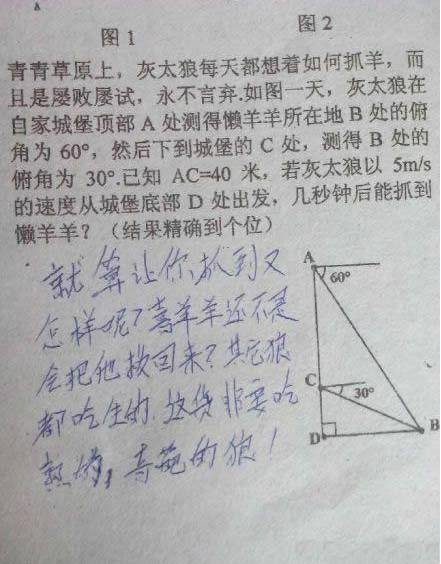 图1
图2
青青草原上，灰太狼每天都想着如何抓羊，而
且是屡败屡试，永不言弃.如图一天，灰太狼在
自家城堡顶部 A 处测得懒羊羊所在地 B 处的俯
角为 60°，然后下到城堡的 C 处，测得 B 处的
俯角为 30°.已知 AC=40 米，若灰太狼以 5m/s
的速度从城堡底部 D 处出发，几秒钟后能抓到
懒羊羊？（结果精确到个位）
就算让你抓到又
怎样呢？喜羊羊还不是
会把他救回来？其它狼
都吃生的，这货非要吃
熟的，奇葩的狼！
A
60°
C
30°
D
B